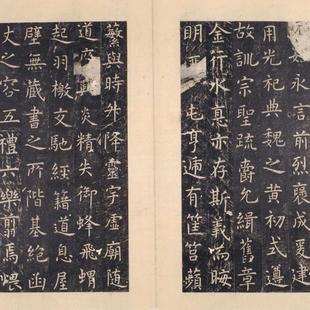 永言前烈褒成爰建
用光祀典魏之黃初式遵
故訓宗聖疏爵允緝舊章
金行水悳亦存斯義而晦
明匪屯亨遞有筐筥蘋
蘩與時升降靈宇虛廟隨
道廢興炎精失御蜂飛蝟
起羽檄交馳經籍道息屋
壁無藏書之所階基絕函
丈之容五禮六樂翦焉煨